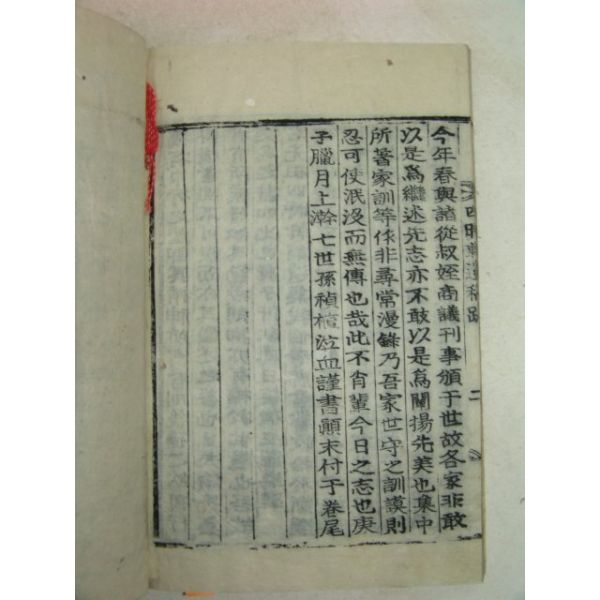 今年春與諸從叔姪商議刊事頒于世故各家非敢
以是爲繼述先志亦不敢以是爲闡揚先美也集中
所著家訓等作非尋常漫錄乃吾家世守之訓謨則
忍可使泯沒而無傳也哉此不肖輩今日之志也庚
子臘月上澣七世孫禎植泣血謹書顚末付于卷尾
二